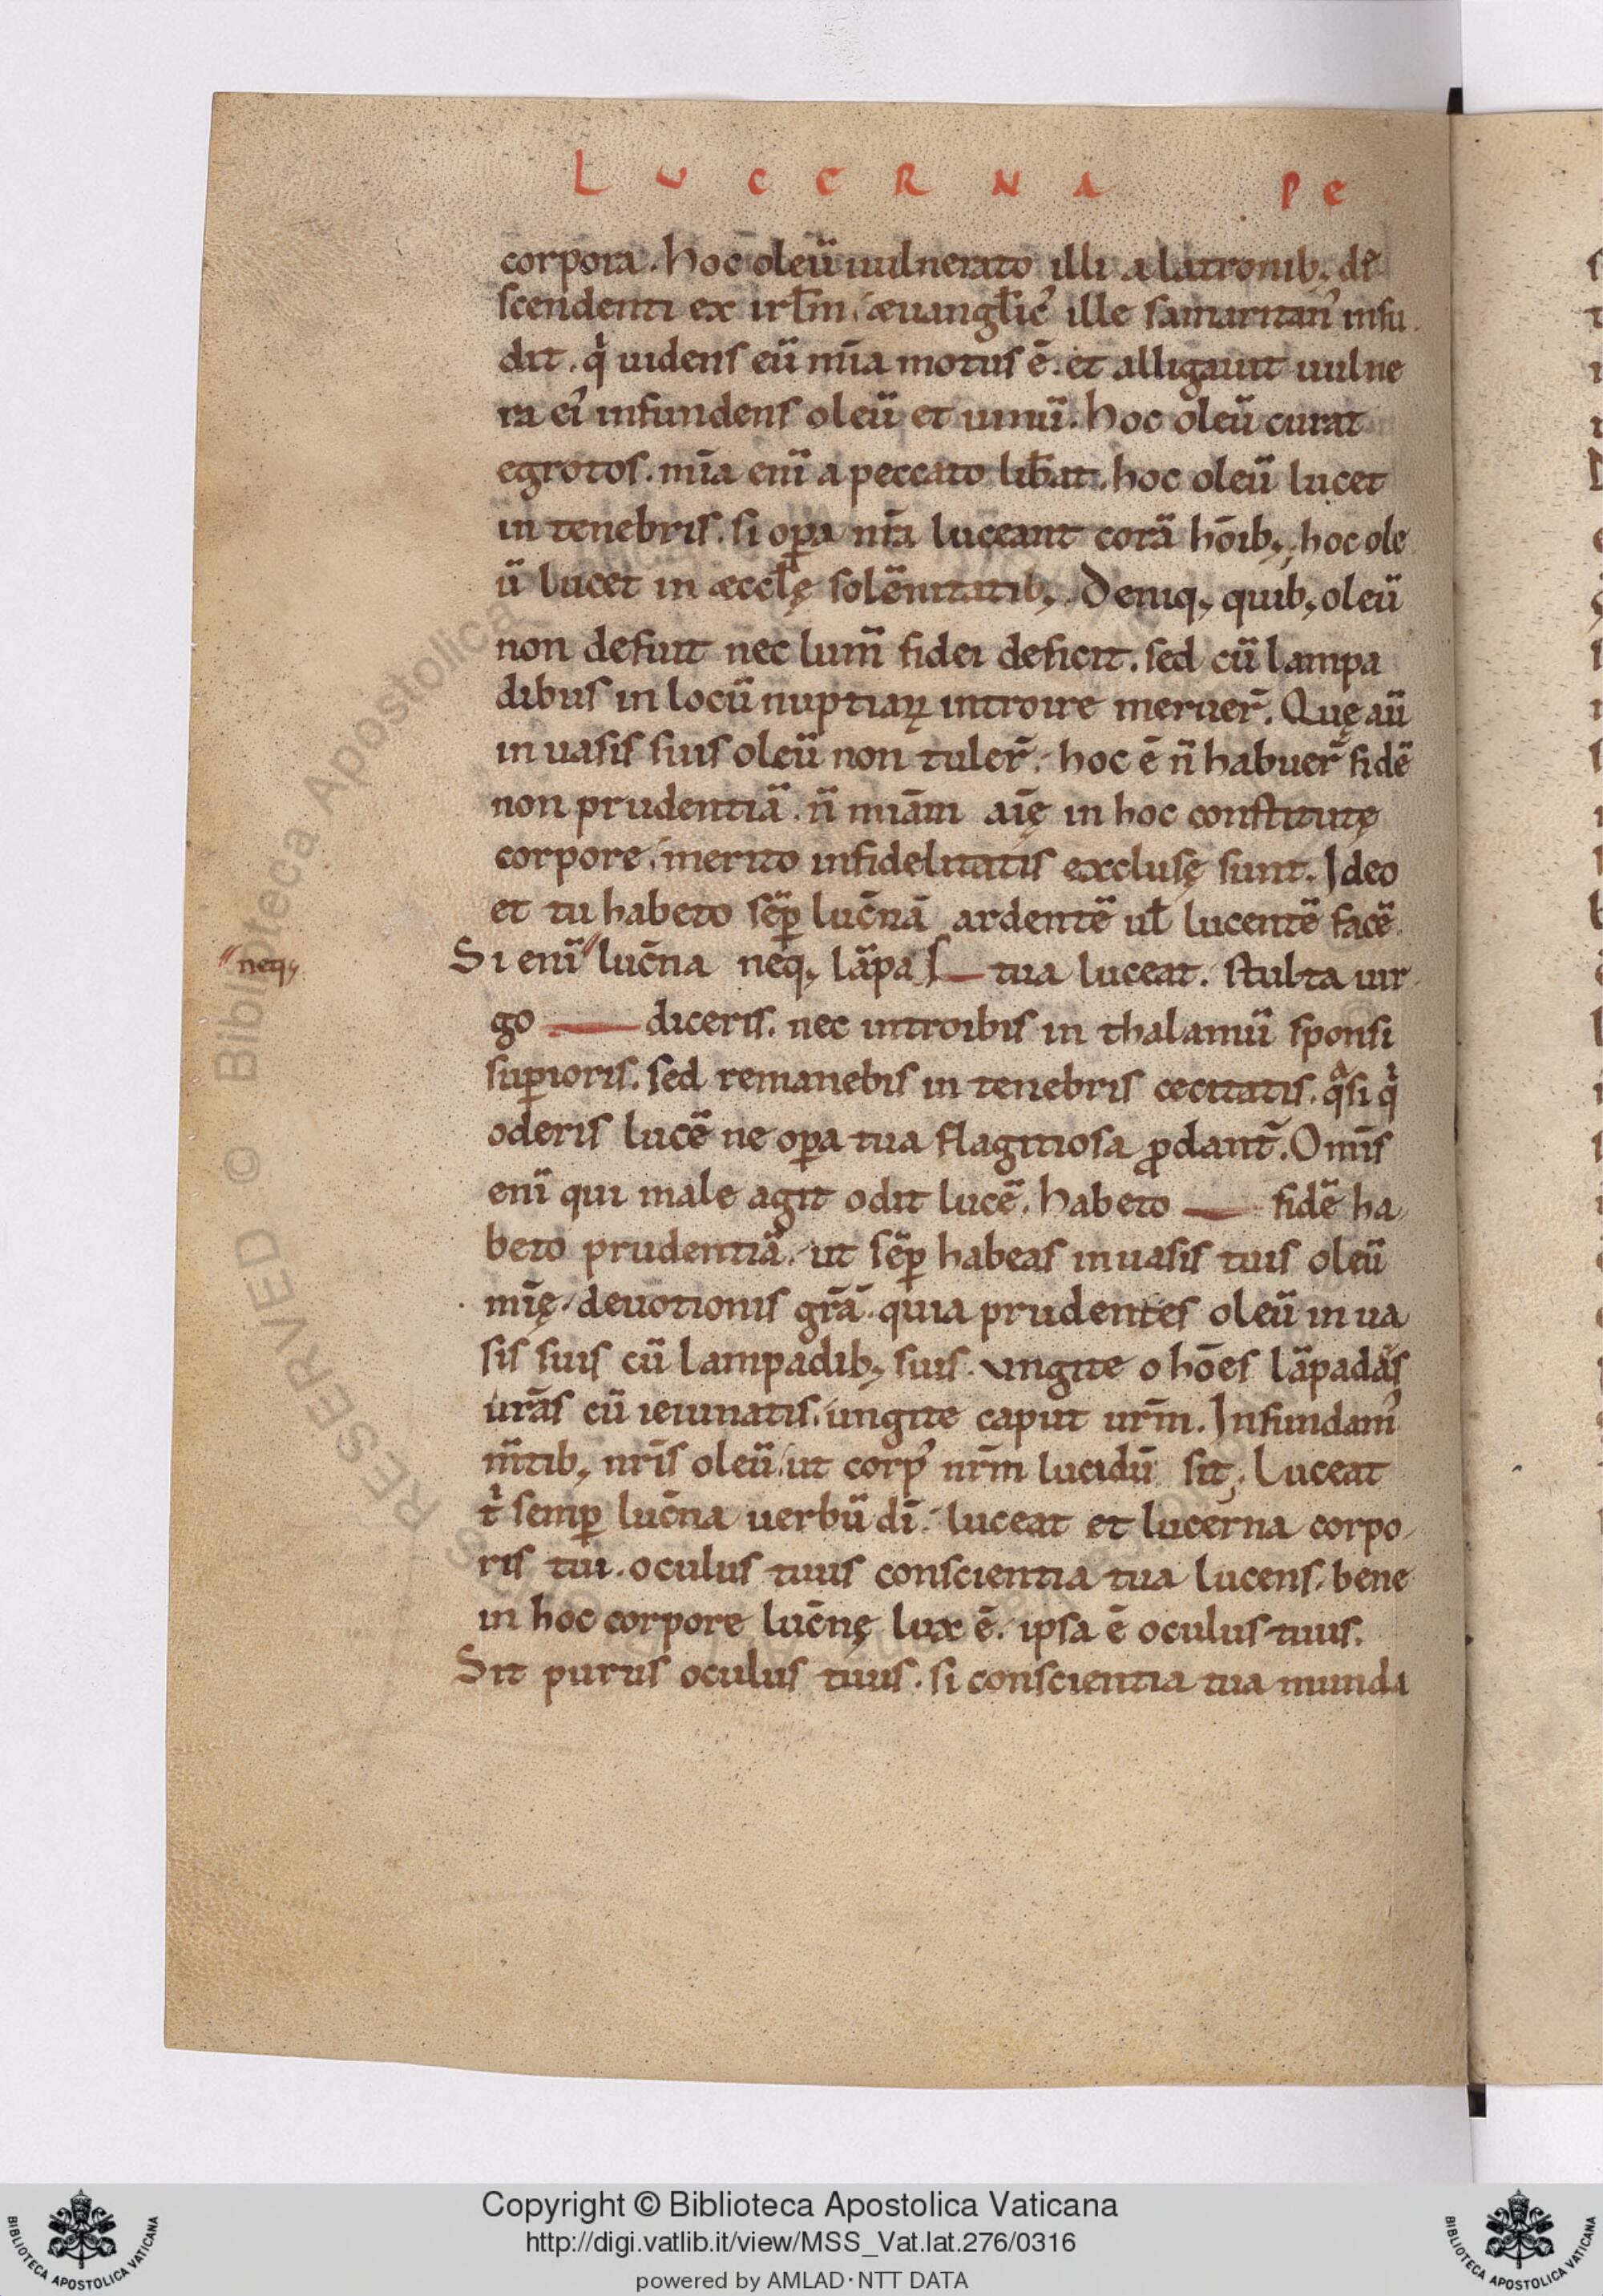 L U C E R N A   P E
corpora. hoc oleū uulnerato illi a latronib; de
scendenti ex irl̄m. æuangl̄ic᾽ ille samaritan᾽ infu
dit. qͥ uidens eū mīa motus ē. et alligauit uulne
ra ei᾽ infundens oleū et uinū. hoc oleū curat
egrotos. mīa enī a peccato lib̄at. hoc oleū lucet
in tenebris. si oꝑa nr̄a luceant corā hōib; hoc ole
ū lucet in æccl̄ę solēnitatib; Deniq; quib; oleū
non defuit nec lum̄ fidei deficit. sed cū lampa
dibus in locū nuptiaꝝ introire meruer̄. Quę aū
in uasis suis oleū non tuler̄. hoc ē n̄ habuer̄ fidē
non prudentiā. n̄ mīam aīę in hoc constitutę
corpore. merito infidelitatis exclusę sunt. Ideo
et tu habeto sēꝑ luc̄nā ardentē ul̄ lucentē facē.
Si enī luc̄na neq; lāpas tua luceat. stulta uir
neq;
go diceris. nec introibis in thalamū sponsi
suꝑioris. sed remanebis in tenebris cecitatis. qͣsi qͥ
oderis lucē ne oꝑa tua flagitiosa ꝓdant̄. Omīs
enī qui male agit odit lucē. habeto fidē ha
beto prudentiā. ut sēꝑ habeas in uasis tuis oleū
mīę. deuotionis grā. quia prudentes oleū in ua
sis suis cū lampadib; suis. ungite o hōes lāpadas
ur̄as cū ieiunatis. ungite caput ur̄m. Infundam᾽
m̄tib; nr̄is oleū. ut corp᾽ nr̄m lucidū sit; Luceat
tͥ semꝑ luc̄na uerbū dī. luceat et lucerna corpo
ris tui. oculus tuus conscientia tua lucens. bene
in hoc corpore luc̄nę lux ē. ipsa ē oculus tuus.
Sit purus oculus tuus. si conscientia tua munda
Copyright © Biblioteca Apostolica Vaticana
http://digi.vatlib.it/view/MSS_Vat.lat.276/0316
powered by AMLAD·NTT DATA
BIBLIOTECA APOSTOLICA VATICANA
BIBLIOTECA APOSTOLICA VATICANA